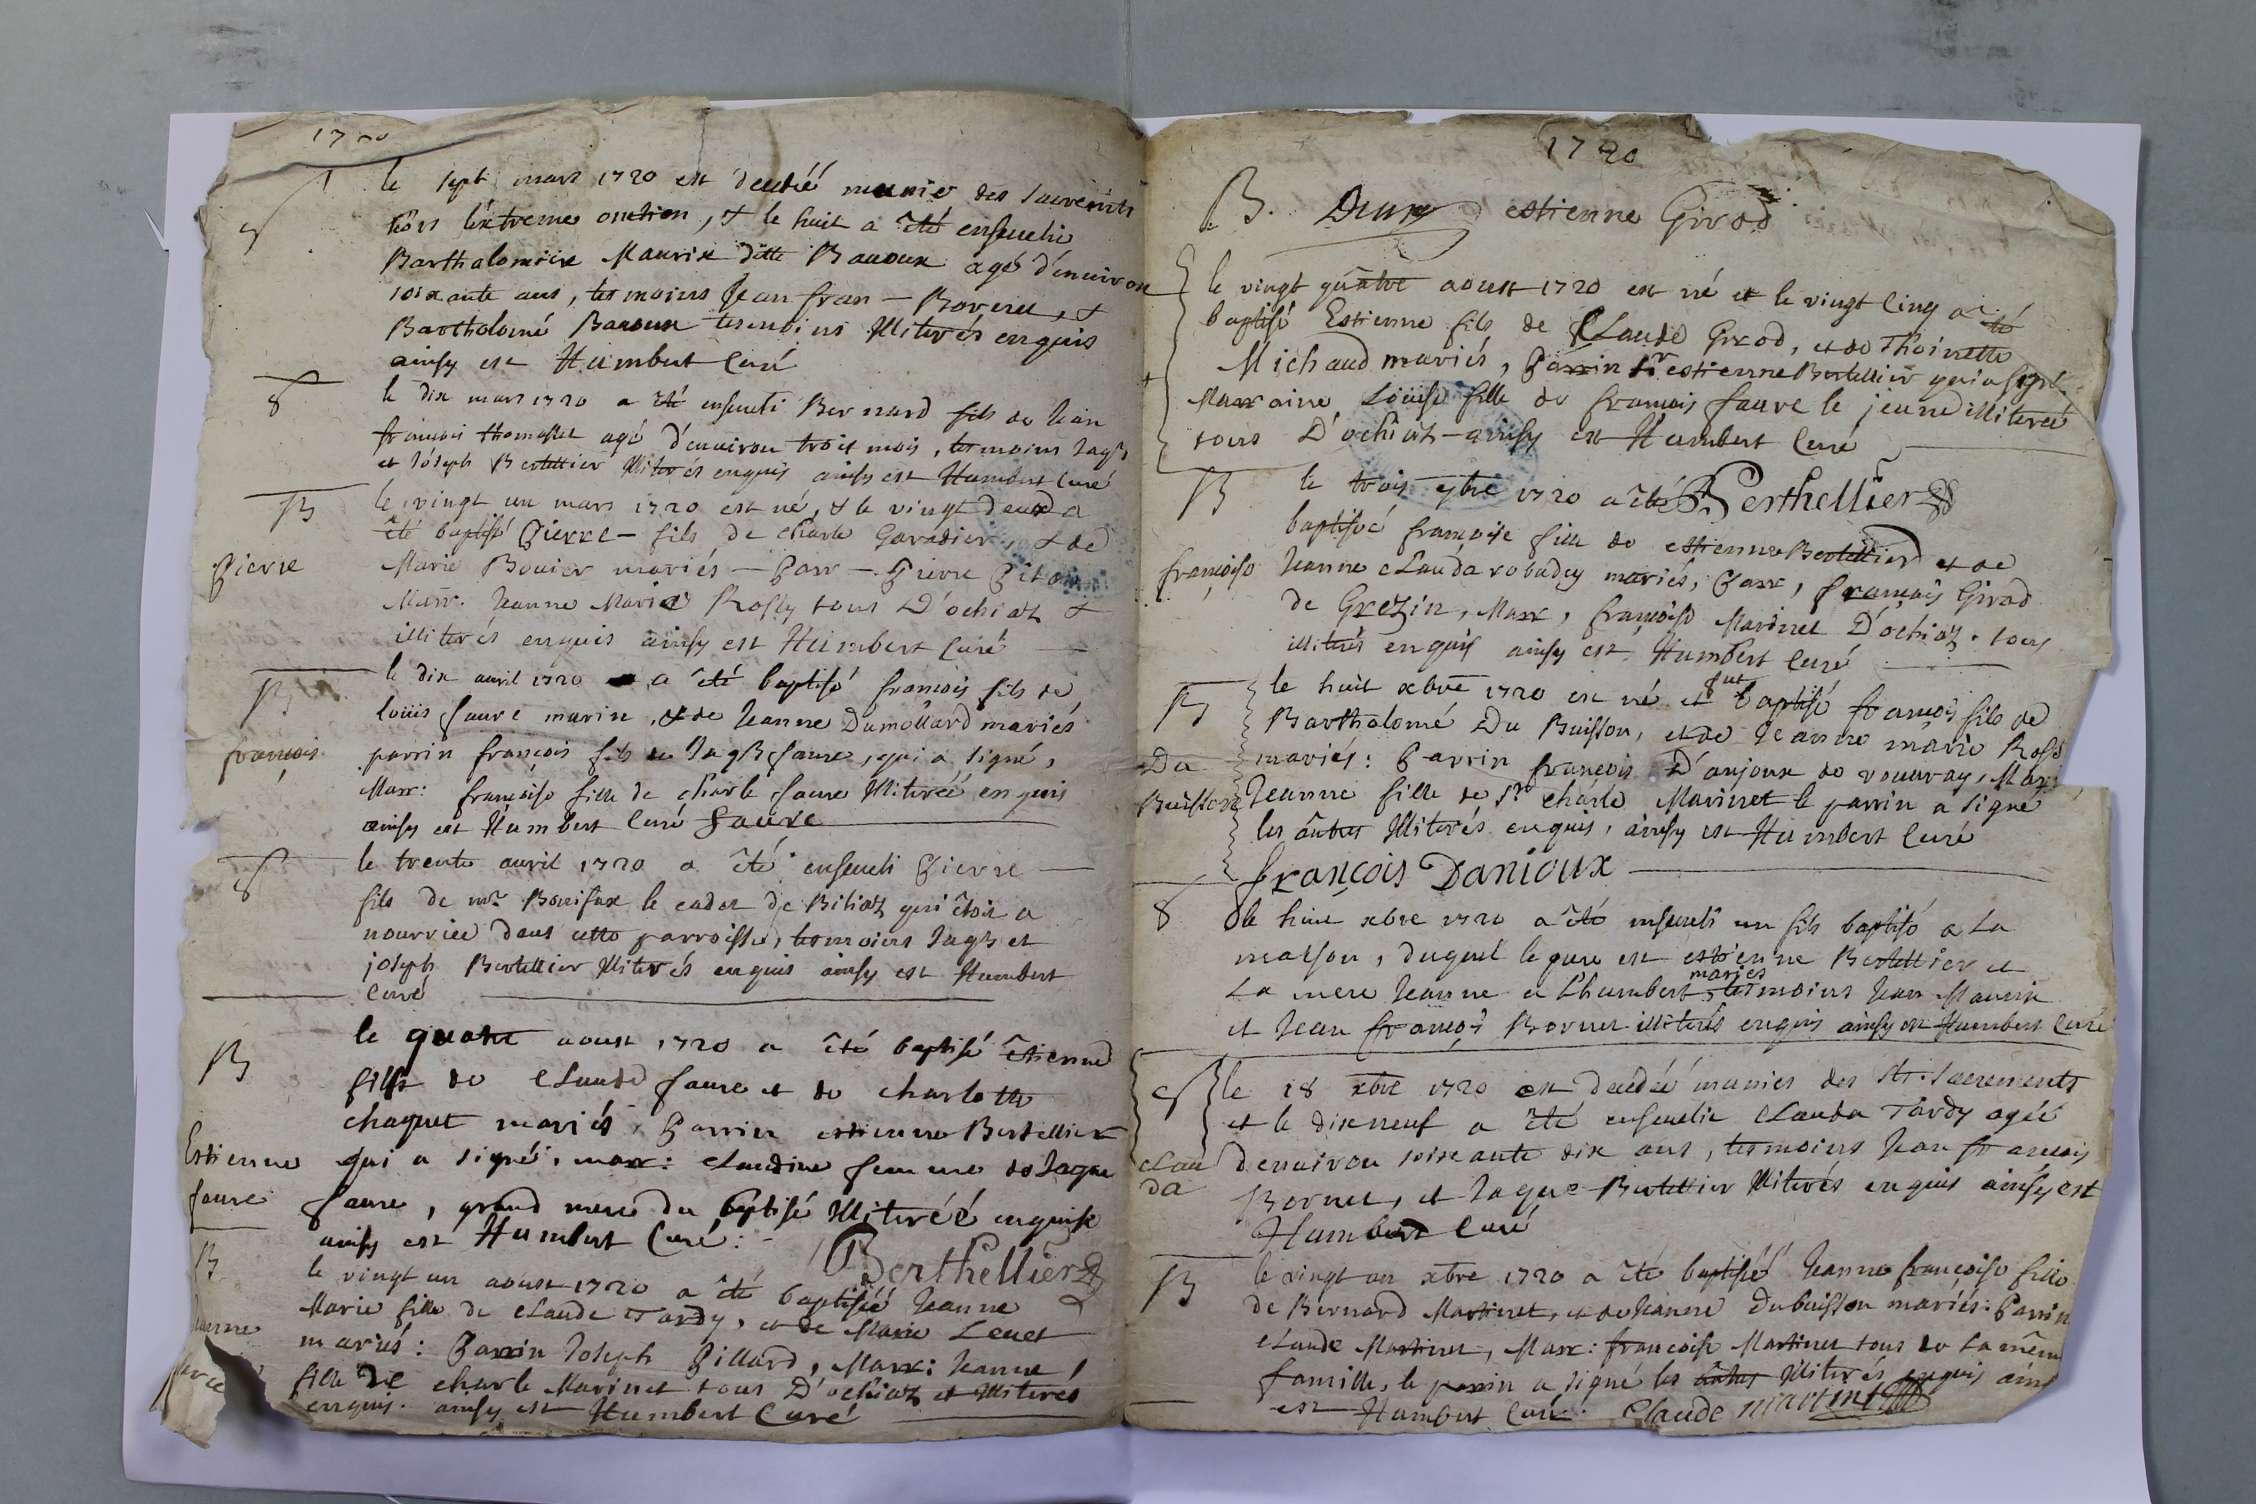 1720
S
le sept mars 1720 est decedéé munie des
l'extreme onction, & le huit a êté ensevelie
Bartholomie Maurix ditte Bauoux agé d'enuiron
soixante ans, tesmoins Jean fran - Bornet, &
Bartholomé Bauoux tesmoins illiterés enquis
ainsy est Humbert Curé
S
le dix mars 1720 a êté enseueli Bernard fils de Jean
françois thomasset agé d'enuiron trois mois, tesmoins Jaqs
et Joseph Bertellier illiterés enquis ainsy est Humbert Curé
B
le vingt un mars 1720 est né, & le vingt deux a
êté baptisé Pierre - fils de charle & de
Pierre
Marie Bouier mariés - Parr - Pierre
Marr. Jeanne Marie Rossy tous D'ochiaz &
illiterés enquis ainsy est Humbert Curé
B
le dix auril 1720 a êté baptisé françois fils de
loüis faure marin, & de Jeanne Dumollard mariés
françois
parrin françois fils de Jaqs faure, qui a signé,
Marr: françoise fille de charle faure illiteréé enquis
ainsy est Humbert Curé faure
S
le trente auril 1720 a êté enseueli Pierre
fils de mr Bonifax le cadet de Biliaz qui êtoit a
nourrice dans cette parroisse, tesmoins Jaqs et
joseph Bertellier illiterés enquis ainsy est Humbert
Curé
B
le quatre aoust 1720 a êté baptisé êtienne
fils de Claude faure et de charlotte
chaquet mariés, Parrin estienne Bertellier
Estienne
qui a signé, marr: claudine femme de Jaque
faure
faure, grand mere du baptisé illiteréé enquise
ainsy est Humbert Curé:
Berthellier
B
le vingt un aoust 1720 a êté baptiséé Jeanne
Marie fille de Claude Tardy, et de Marie Leuet
Jeanne
mariés: Parrin Joseph Pillard, Marr: Jeanne,
fille de charle Marinet tous D'ochiaz et illiterés
enquis. ainsy est Humbert Curé
1720
B. estienne Girod
le vingt quatre aoust 1720 est né et le vingt Cinq a êté
baptisé Estienne fils de Claude Girod, et de Thoinette
Michaud mariés, Parrin Sr estienne Bertellier qui a signé
Marraine Loüise fille de françois faure le jeune illiteréé
tous D'ochiaz - ainsy est Humbert Curé
Berthellier
B
le trois 7bre 1720 a êté
baptiséé françoise fille de estienne Bertellier et de
françoise
Jeanne Clauda robadey mariés, Parr, françois Girod
de Grezin, Marr, françoise Marinet D'ochiaz. tous
illiterés enquis ainsy est Humbert Curé
B
le huit xbre 1720 est né et fut baptisé françois fils de
Bartholomé Du Buisson, et de Jeanne marie Rossy
Du
mariés: Parrin françois D'anjoux de vouuray, Marr:
Buisson
Jeanne fille de Sr charle Marinet le parrin a signé
les autres illiterés enquis, ainsy est Humbert Curé
françois Danioux
S
le huit xbre 1720 a êté enseueli un fils baptisé a La
maison, duquel le pere est estienne Bertellier et
La mere Jeanne a L'humbert mariés, tesmoins Jean Maurix
et Jean françois Bornet illiterés enquis ainsy est Humbert Curé
S
le 18 xbre 1720 est decedéé munies des sts. sacrements
et le dixneuf a êté enseuelie Clauda Tardy agéé
Clau
da
denuiron soixante dix ans, tesmoins Jean françois
Bornet, et Jaque Bertellier illiterés enquis ainsy est
Humbert Curé
B
le vingt un xbre 1720 a êté baptiséé Jeanne françoise fille
de Bernard Martinet, et de Jeanne Dubuisson mariés: Parrin
Claude Martinet, Marr: françoise Martinet tous de La même
famille, le parrin a signé les autres illiterés enquis ainsy
est Humbert Curé. Claude martinet